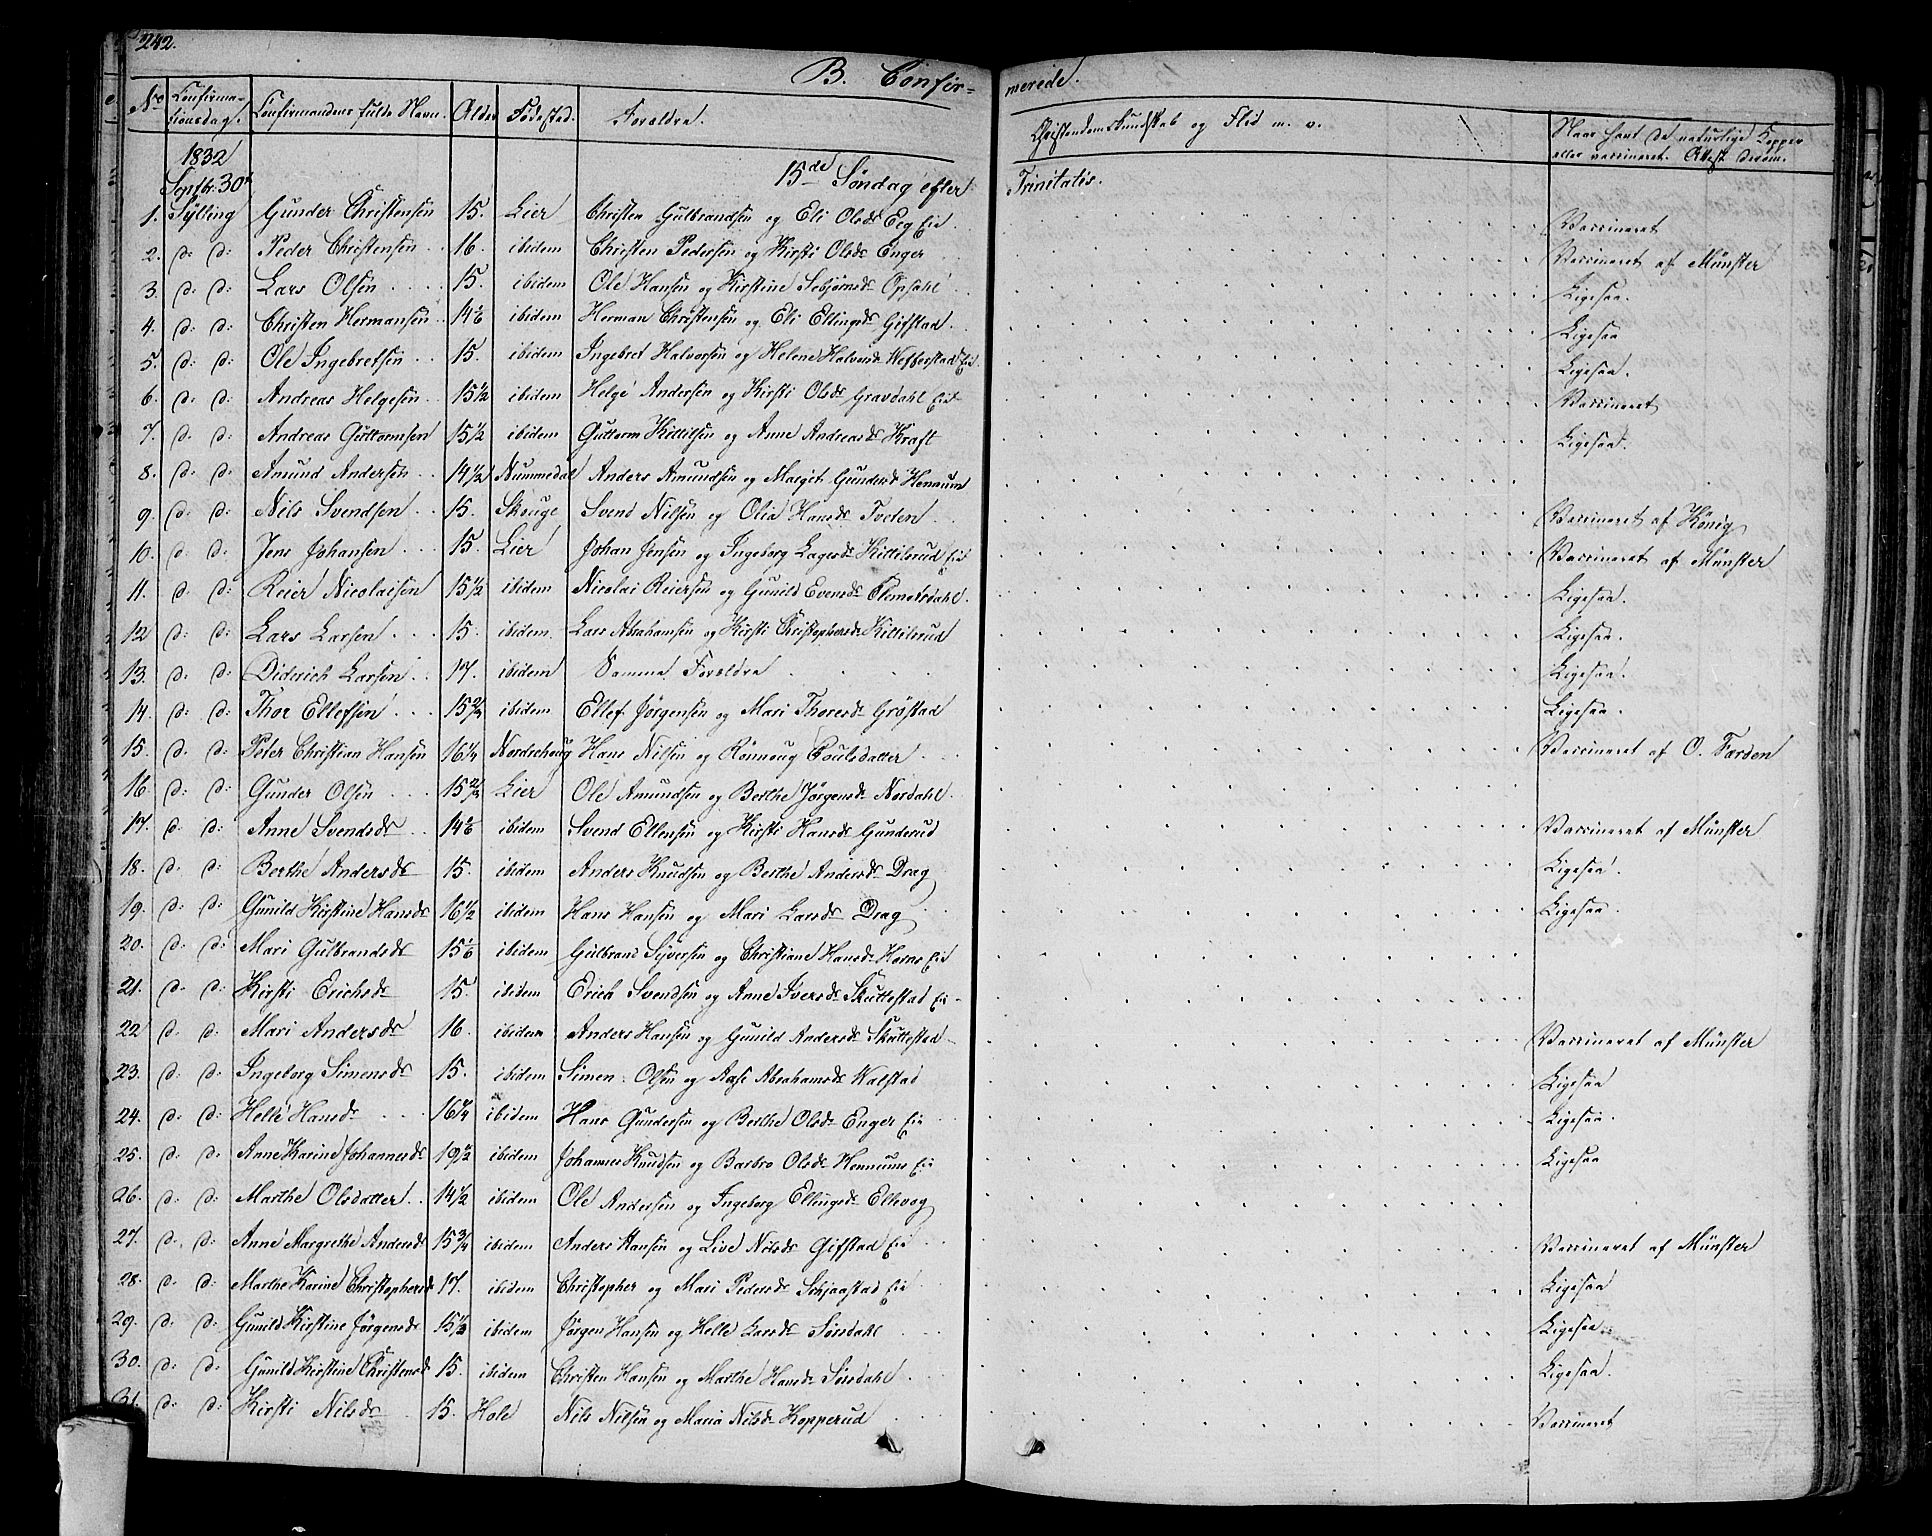 242.
B. Confir- merede.
No Confirma- tionsdag. Confirmandens fulde Navn. Alder Fødested. Forældre. Christendomskundskab og Flid m. v. Naar havt de naturlige Kopper eller vaccineret. Attest derom.
1832
Septbr: 30te 15de Søndag efter Trinitatis.
1. Sylling Gunder Christensen 15. Lier Christen Gulbrandsen og Eli Olsdr Eeg Eie Vaccineret
2. d: d: Peder Christensen 16. ibidem Christen Pedersen og Kirsti Olsdr Enger Vaccineret af Münster
3. d: d: Lars Olsen 15. ibidem Ole Hansen og Kirstine Sebjørnsdr Opsahl Ligesaa.
4. d: d: Christen Hermansen 14 1/6 ibidem Herman Christensen og Eli Ellingsdr Gifstad Ligesaa
5. d: d: Ole Ingebretsen 15. ibidem Ingebret Halvorsen og Helene Halvorsdr Wefferstad Eie. Ligesaa.
6. d: d: Andreas Helgesen 15 1/2 ibidem Helge Andersen og Kirsti Olsdr Gravdahl Eie Vaccineret
7. d: d: Andreas Guttormsen 15 1/2 ibidem Guttorm Kittilsen og Anne Andreasdr Kraft Ligesaa.
8. d: d: Amund Andersen 14 1/2 Nummedal Anders Amundsen og Margit Gundersdr Henaum
9. d: d: Nils Svendsen 15. Skouge Svend Nilsen og Olia Hansdr Tveten Vaccineret af König
10. d: d: Jens Johansen 15. Lier Johan Jensen og Ingeborg Lagesdr Kittilsrud Eie Vaccineret af Münster
11. d: d: Reier Nicolaisen 15 1/2 ibidem Nicolai Reiersen og Gunild Evensdr Clemetsdahl. Ligesaa.
12 d: d: Lars Larsen 15. ibidem. Lars Abrahamsen og Kirsti Christophersdr Kittilsrud Ligesaa.
13. d: d: Diderich Larsen 17. ibidem Samme Forældre Ligesaa.
14. d: d: Thor Ellefsen 15 3/4 ibidem Ellef Jörgensen og Mari Thoresdr Gröstad Ligesaa.
15. d: d: Peter Christian Hansen 16 1/4 Norderhoug Hans Nilsen og Rönnoug Poulsdatter Vaccineret af O. Farden
16. d: d: Gunder Olsen 15 3/4 Lier Ole Amundsen og Berthe Jörgensdr Nordahl.
17. d: d: Anne Svendsdr 14 1/6 ibidem Svend Ellensen og Kirsti Hansdr Gunderud Vaccineret af Münster
18. d: d: Berthe Andersdr 15. ibidem Anders Knudsen og Berthe Andersdr Drag Ligesaa
19. d: d: Gunild Kirstine Hansdr 16 1/2 ibidem Hans Hansen og Mari Larsdr Drag Ligesaa
20. d: d: Mari Gulbrandsdr 15 1/6 ibidem Gulbrand Syversen og Christiane Hansdr Horne Eie
21. d: d: Kirsti Erichsdr 15. ibidem Erich Svendsen og Anne Iversdr Skuttestad Eie
22 d: d: Mari Andersdr 16. ibidem Anders Hansen og Gunild Andersdr Skuttestad Vaccineret af Münster
23. d: d: Ingeborg Simensdr 15. ibidem Simen Olsen og Aase Abrahamsdr Walstad Ligesaa
24. d: d: Helle Hansdr 16 3/4 ibidem Hans Gundersen og Berthe Olsdr Enger Eie Ligesaa.
25. d: d: Anne Karine Johannesdr 19 1/2 ibidem Johannes Knudsen og Barbro Olsdr Hennum Eie Ligesaa
26. d: d: Marthe Olsdatter 14 1/2 ibidem Ole Andersen og Ingeborg Ellingsdr Ellevog
27. d: d: Anne Margrethe Andersdr 15 3/4 ibidem Anders Hansen og Live Nilsdr Gifstad Eie Vaccineret af Münster
28. d: d: Marthe Karine Christophersdr 17. ibidem Christopher og Mari Pedersdr Schjaastad Eie Ligesaa
29. d: d: Gunild Kirstine Jörgensdr 15 1/3 ibidem Jörgen Hansen og Helle Larsdr Sørsdahl Ligesaa
30. d: d: Gunild Kirstine Christensdr 15. ibidem Christen Hansen og Marthe Hansdr Sørsdahl Ligesaa.
31. d: d: Kirsti Nilsdr 15. Hole Nils Nilsen og Maria Nilsdr Kopperud Vaccineret